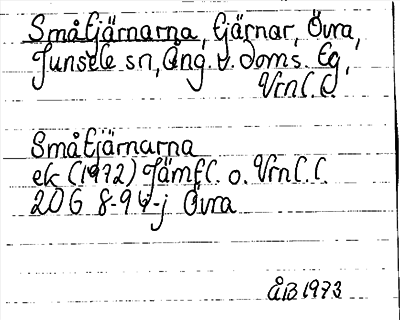 Småtjärnarna, tjärnar, Övra,
Junsele sn, Ång. v. doms. tg,
Vrnl. l.
Småtjärnarna
ek (1972) Jämtl. o. Vrnl. l.
20G 8-9 j Övra
ÅB 1973